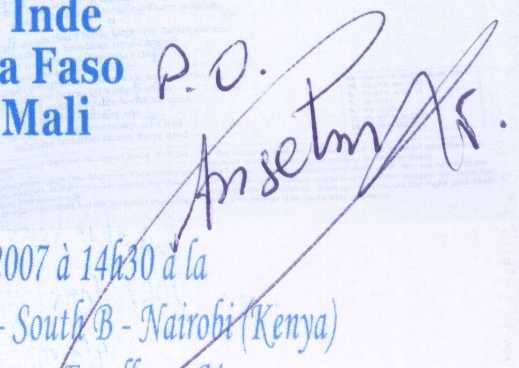 Inde
a Faso
Mali
P.O.
Anselm Jr.
2007 à 14h30 à la
- South B - Nairobi (Kenya)